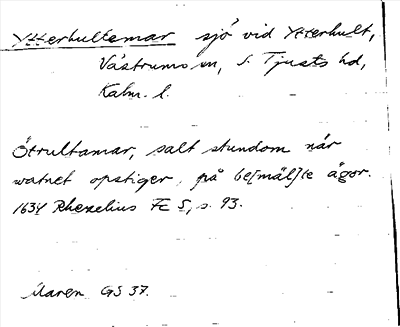 Ytterhultemar sjö vid Ytterhult,
Västrums sn, S. Tjusts hd,
Kalm. l.
Ötrultamar, salt stundom när
watnet opstiger, på be[mäl]te ägor.
1634 Rhezelius FE 5, s. 93.
Maren GS 37.